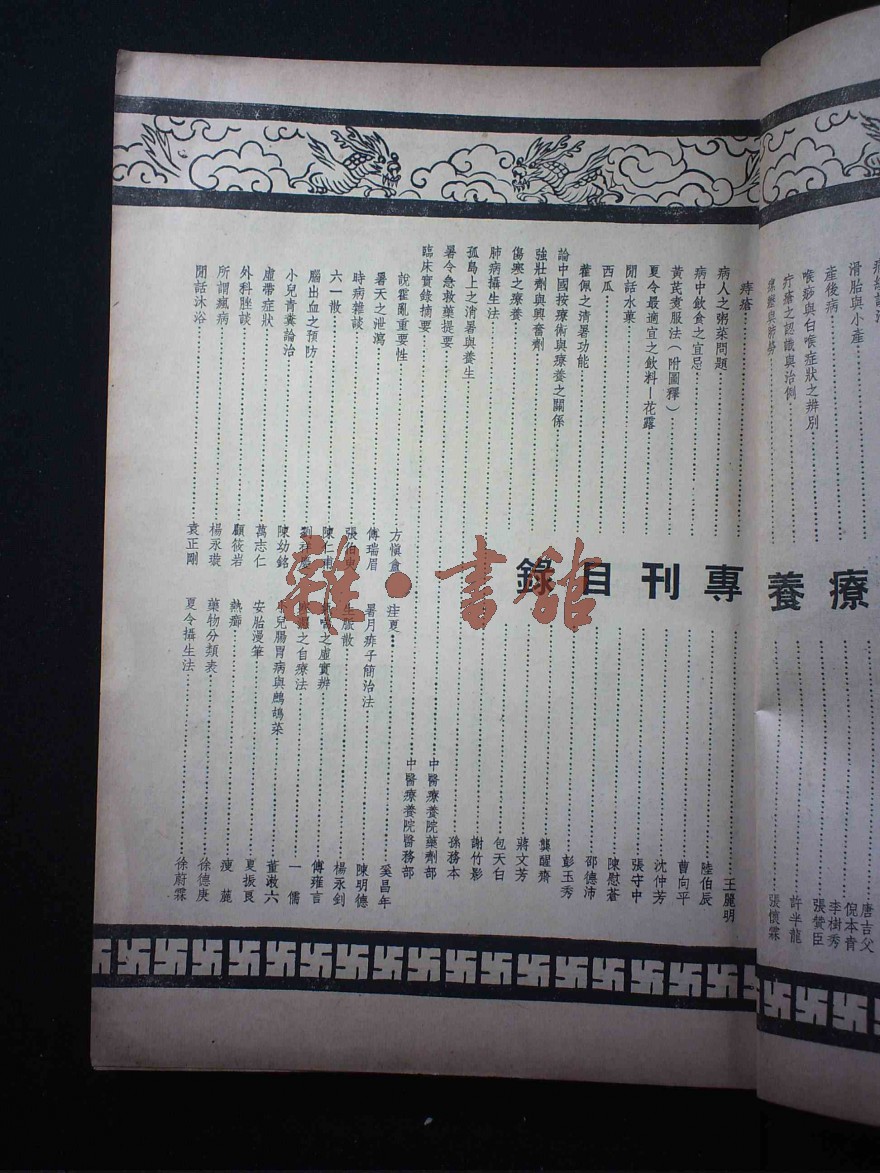 療養專刊目錄
唐吉父
滑胎與小產 倪本青
產後病 李樹秀
喉痧與白喉症狀之辨別 張贊臣
疔瘡之認識與治例 許半龍
瘰癧與肺癆 張懷霖
痔瘡 王麗明
病人之粥菜問題 陸伯辰
病中飲食之宜忌 曹向平
黃芪煮服法(附圖釋) 沈仲芳
夏令最適宜之飲料—花露 張守中
閒話水菓 陳慰蒼
西瓜 邵德沛
藿佩之清暑功能 彭玉秀
論中國按療術與療養之關係 龔醒齋
強壯劑與興奮劑 蔣文芳
傷寒之療養 包天白
肺病攝生法 謝竹影
孤島上之消暑與養生 孫務本
暑令急救藥提要 中醫療養院藥劑部
臨床實錄摘要 中醫療養院醫務部
說霍亂重要性 方慎盦
暑天之泄瀉 傅瑞眉
時病雜談 張伯臾
六一散 陳仁
腦出血之預防
小兒青糞論治 陳幼銘
虛帶症狀 萬志仁
外科脞談 顧筱岩
所謂瘋病 楊永璇
閒話沐浴 袁正剛
疰夏 奚昌年
暑月痱子簡治法 陳明德
生脈散 楊永釗
喘之虛實辨 傅雍言
之自療法 一儒
小兒腸胃病與鷓鴣菜 董漱六
安胎漫筆 夏振良
熱癤 瘦
藥物分類表 徐德庚
夏令攝生法 徐蔚霖
雜·書館